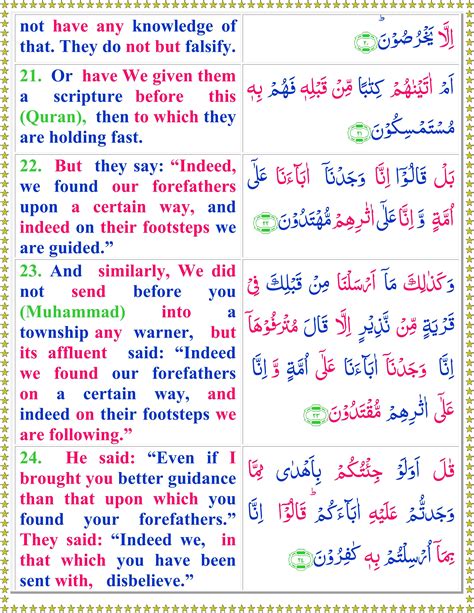 not have any knowledge of
that. They do not but falsify.
اِلَّا يَخْرُصُوْنَؕ ۝۲۰
21. Or have We given them
a scripture before this
(Quran), then to which they
are holding fast.
اَمْ اٰتَيْنٰهُمْ كِتٰبًا مِّنْ قَبْلِهٖ فَهُمْ بِهٖ
مُسْتَمْسِكُوْنَ ۝۲۱
22. But they say: “Indeed,
we found our forefathers
upon a certain way, and
indeed on their footsteps we
are guided.”
بَلْ قَالُوْۤا اِنَّا وَجَدْنَاۤ اٰبَآءَنَا عَلٰٓى
اُمَّةٍ وَّ اِنَّا عَلٰٓى اٰثٰرِهِمْ مُّهْتَدُوْنَ ۝۲۲
23. And similarly, We did
not send before you
(Muhammad) into a
township any warner, but
its affluent said: “Indeed
we found our forefathers
on a certain way, and
indeed on their footsteps we
are following.”
وَكَذٰلِكَ مَاۤ اَرْسَلْنَا مِنْ قَبْلِكَ فِيْ
قَرْيَةٍ مِّنْ نَّذِيْرٍ اِلَّا قَالَ مُتْرَفُوْهَاۤ
اِنَّا وَجَدْنَاۤ اٰبَآءَنَا عَلٰٓى اُمَّةٍ وَّ اِنَّا
عَلٰٓى اٰثٰرِهِمْ مُّقْتَدُوْنَ ۝۲۳
24. He said: “Even if I
brought you better guidance
than that upon which you
found your forefathers.”
They said: “Indeed we, in
that which you have been
sent with, disbelieve.”
قٰلَ اَوَلَوْ جِئْتُكُمْ بِاَهْدٰى مِمَّا
وَجَدْتُّمْ عَلَيْهِ اٰبَآءَكُمْؕ قَالُوْۤا اِنَّا
بِمَاۤ اُرْسِلْتُمْ بِهٖ كٰفِرُوْنَ ۝۲۴